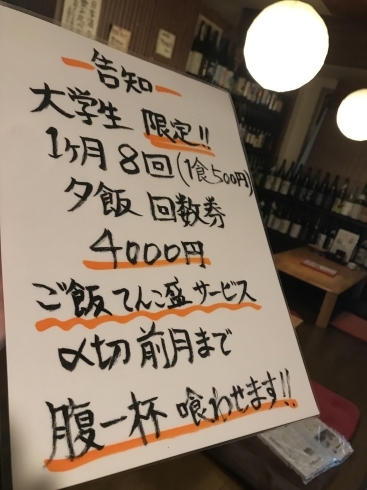 告知
大学生 限定!!
1ヶ月 8回(1食500円)
夕飯 回数券
4000円
ご飯てんこ盛サービス
〆切 前月まで
腹一杯 喰わせます!!